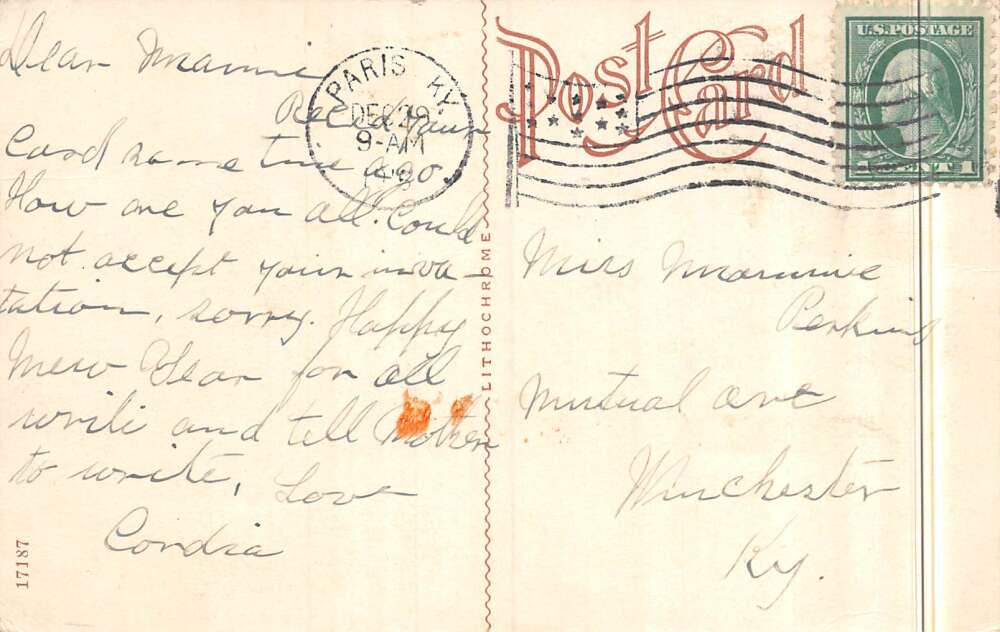 Dear Mamie
Recd your
Card some time ago.
How are you all. Could
not accept your inva-
tation, sorry. Happy
New Year for all
write and tell Mother
to write, Love
Cordia
17187
LITHOCHROME
PARIS. KY.
DEC 29
9-AM
Post Card
U.S. POSTAGE
CENT 1
Miss Mammie
Perkins
Mutual Ave
Winchester
Ky.